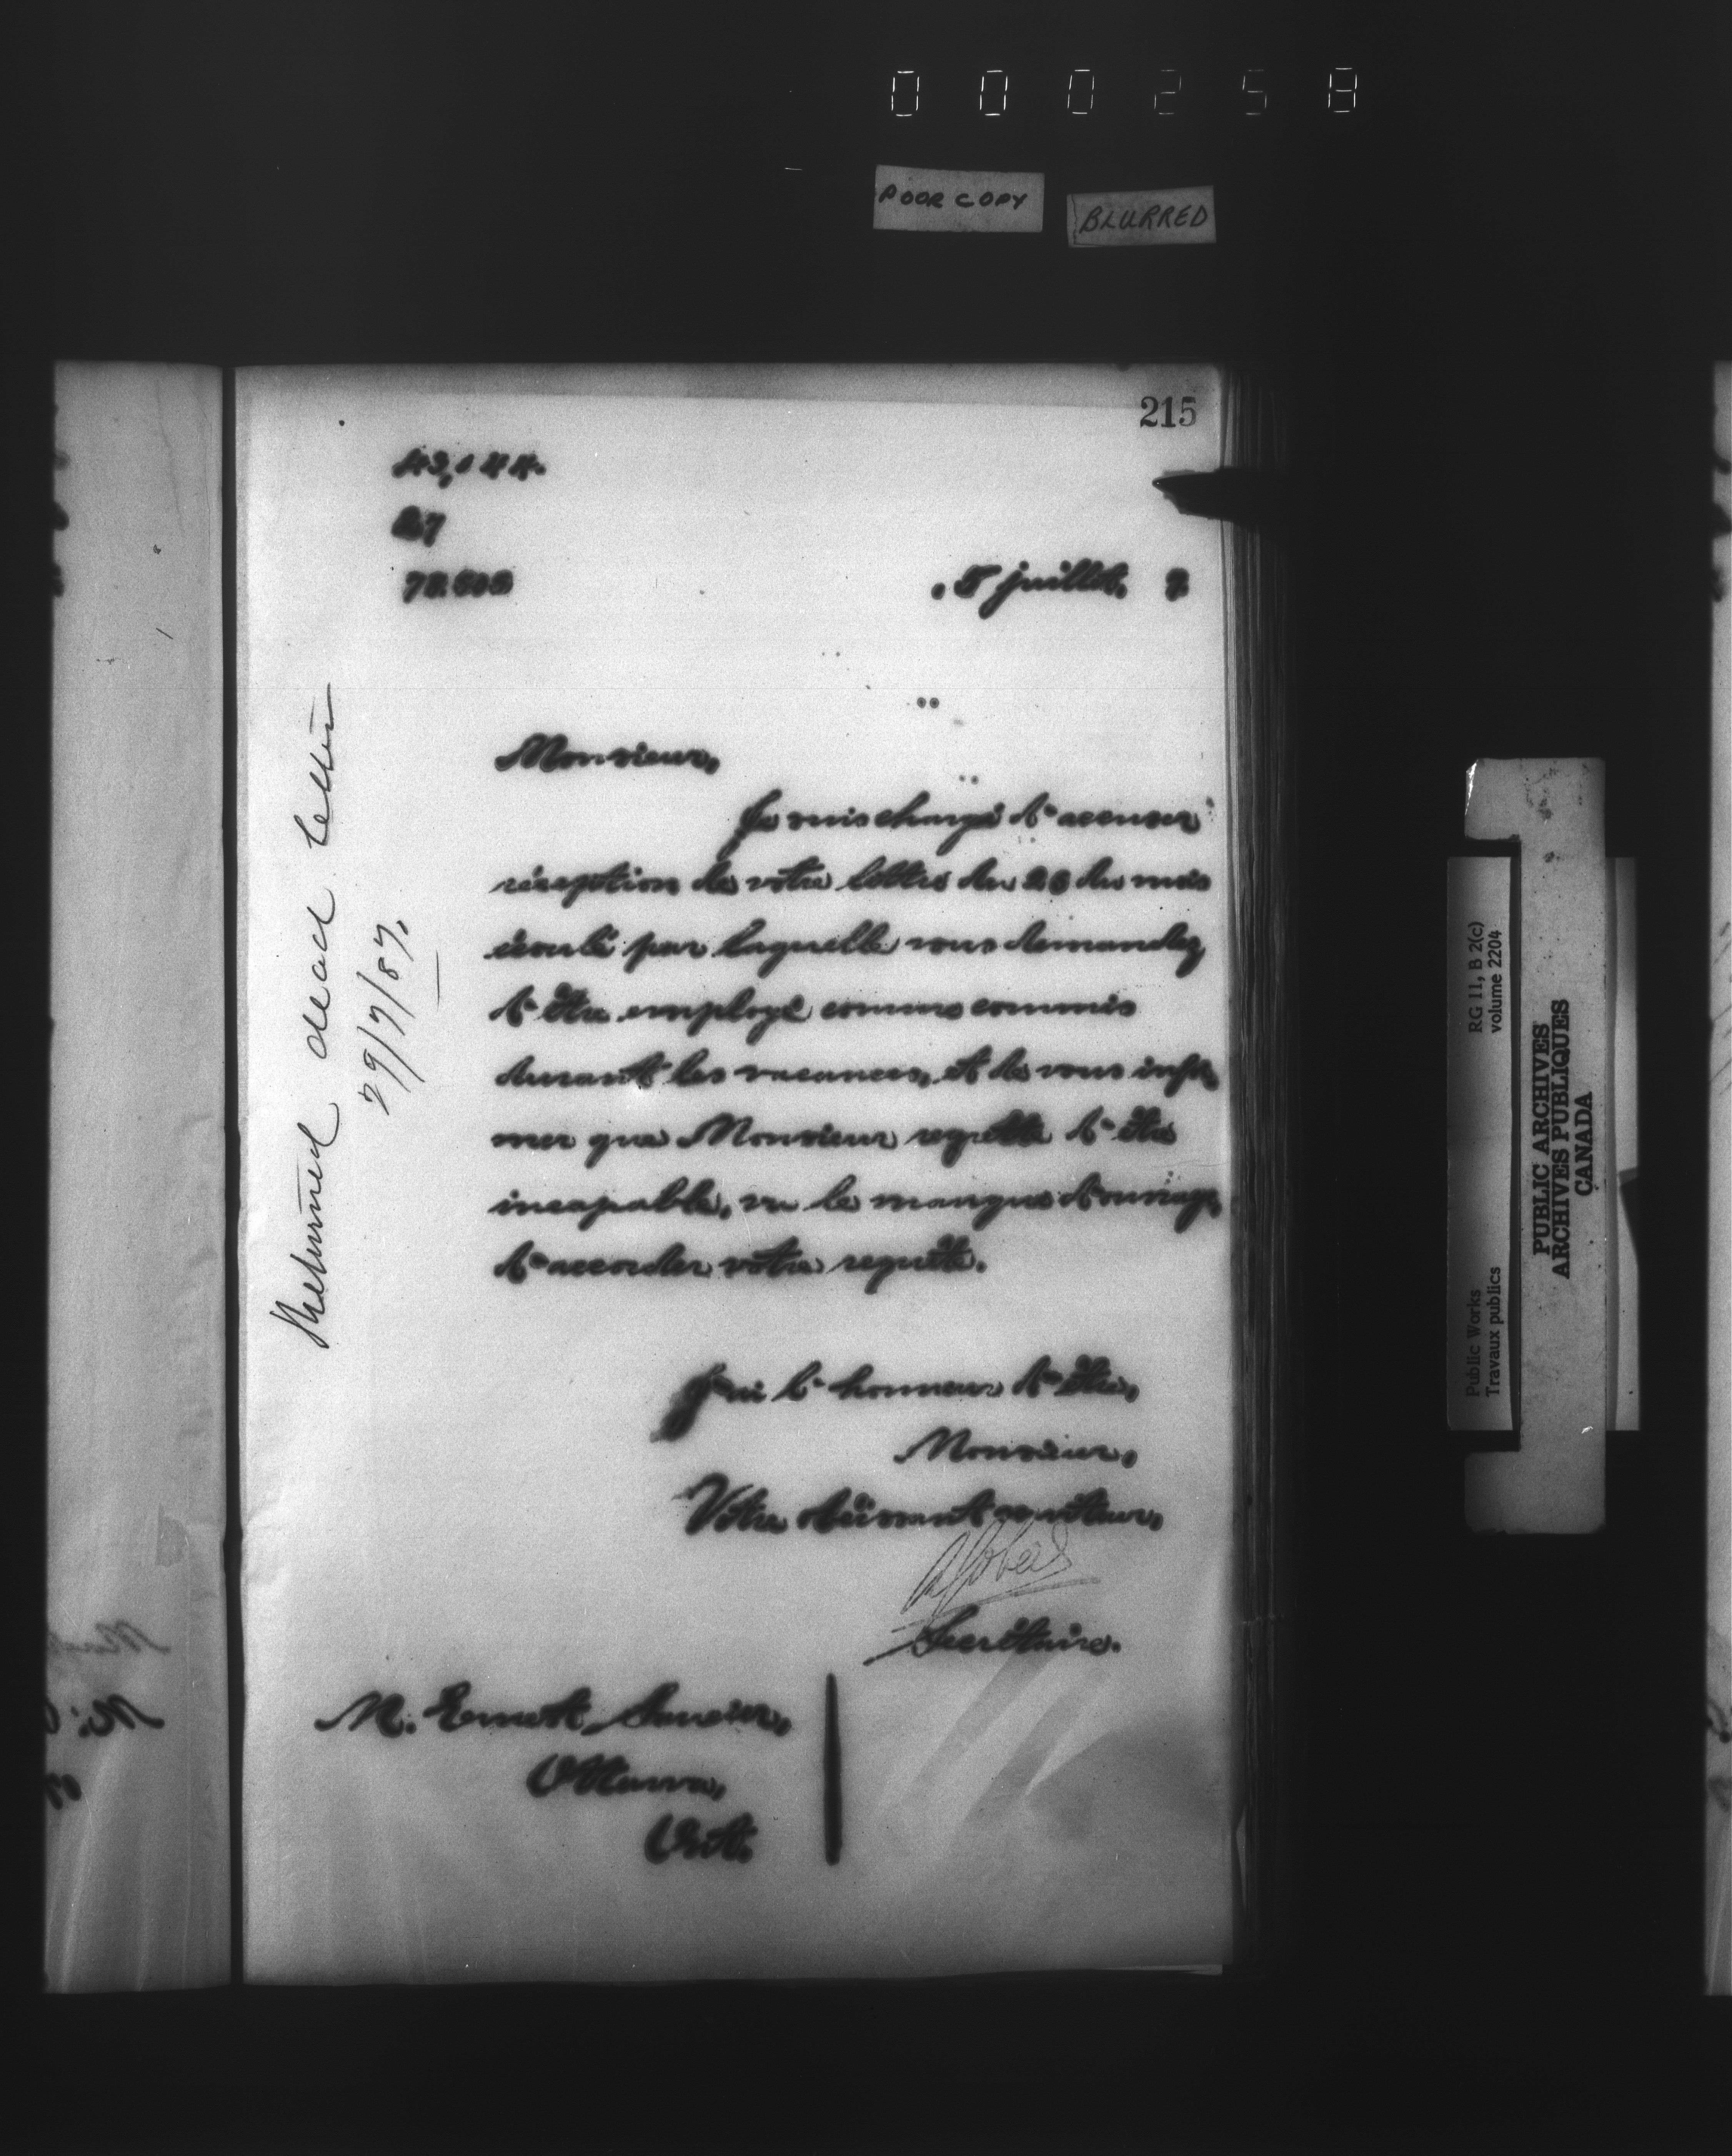 000258
POOR COPY
BLURRED
215
43,144.
27
5 juillet, 7
Returned dead letter
29/7/87.
Monsieur,
Je suis chargé d'accuser
réception de votre lettre du 26 du mois
écoulé par laquelle vous demandez
d'être employé comme commis
durant les vacances, et de vous infor
mer que Monsieur regrette d'être
incapable, vu le manque d'ouvrage
d'accorder votre requête.
J'ai l'honneur d'être,
Monsieur,
Votre obéissant serviteur,
Secrétaire.
M. Ernest
Ottawa,
Ont.
Public Works
Travaux publics
RG 11, B 2(c)
volume 2204
PUBLIC ARCHIVES
ARCHIVES PUBLIQUES
CANADA